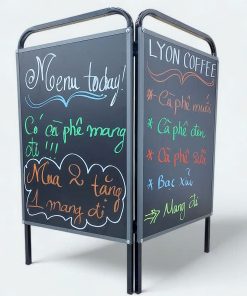 Menu today!
Có cà phê mang
đi !!!
Mua 2 tặng
1 mang đi
LYON COFFEE
* Cà phê muối
* Cà phê đen
* Cà phê sữa
* Bạc xỉu
⇒ Mang đi